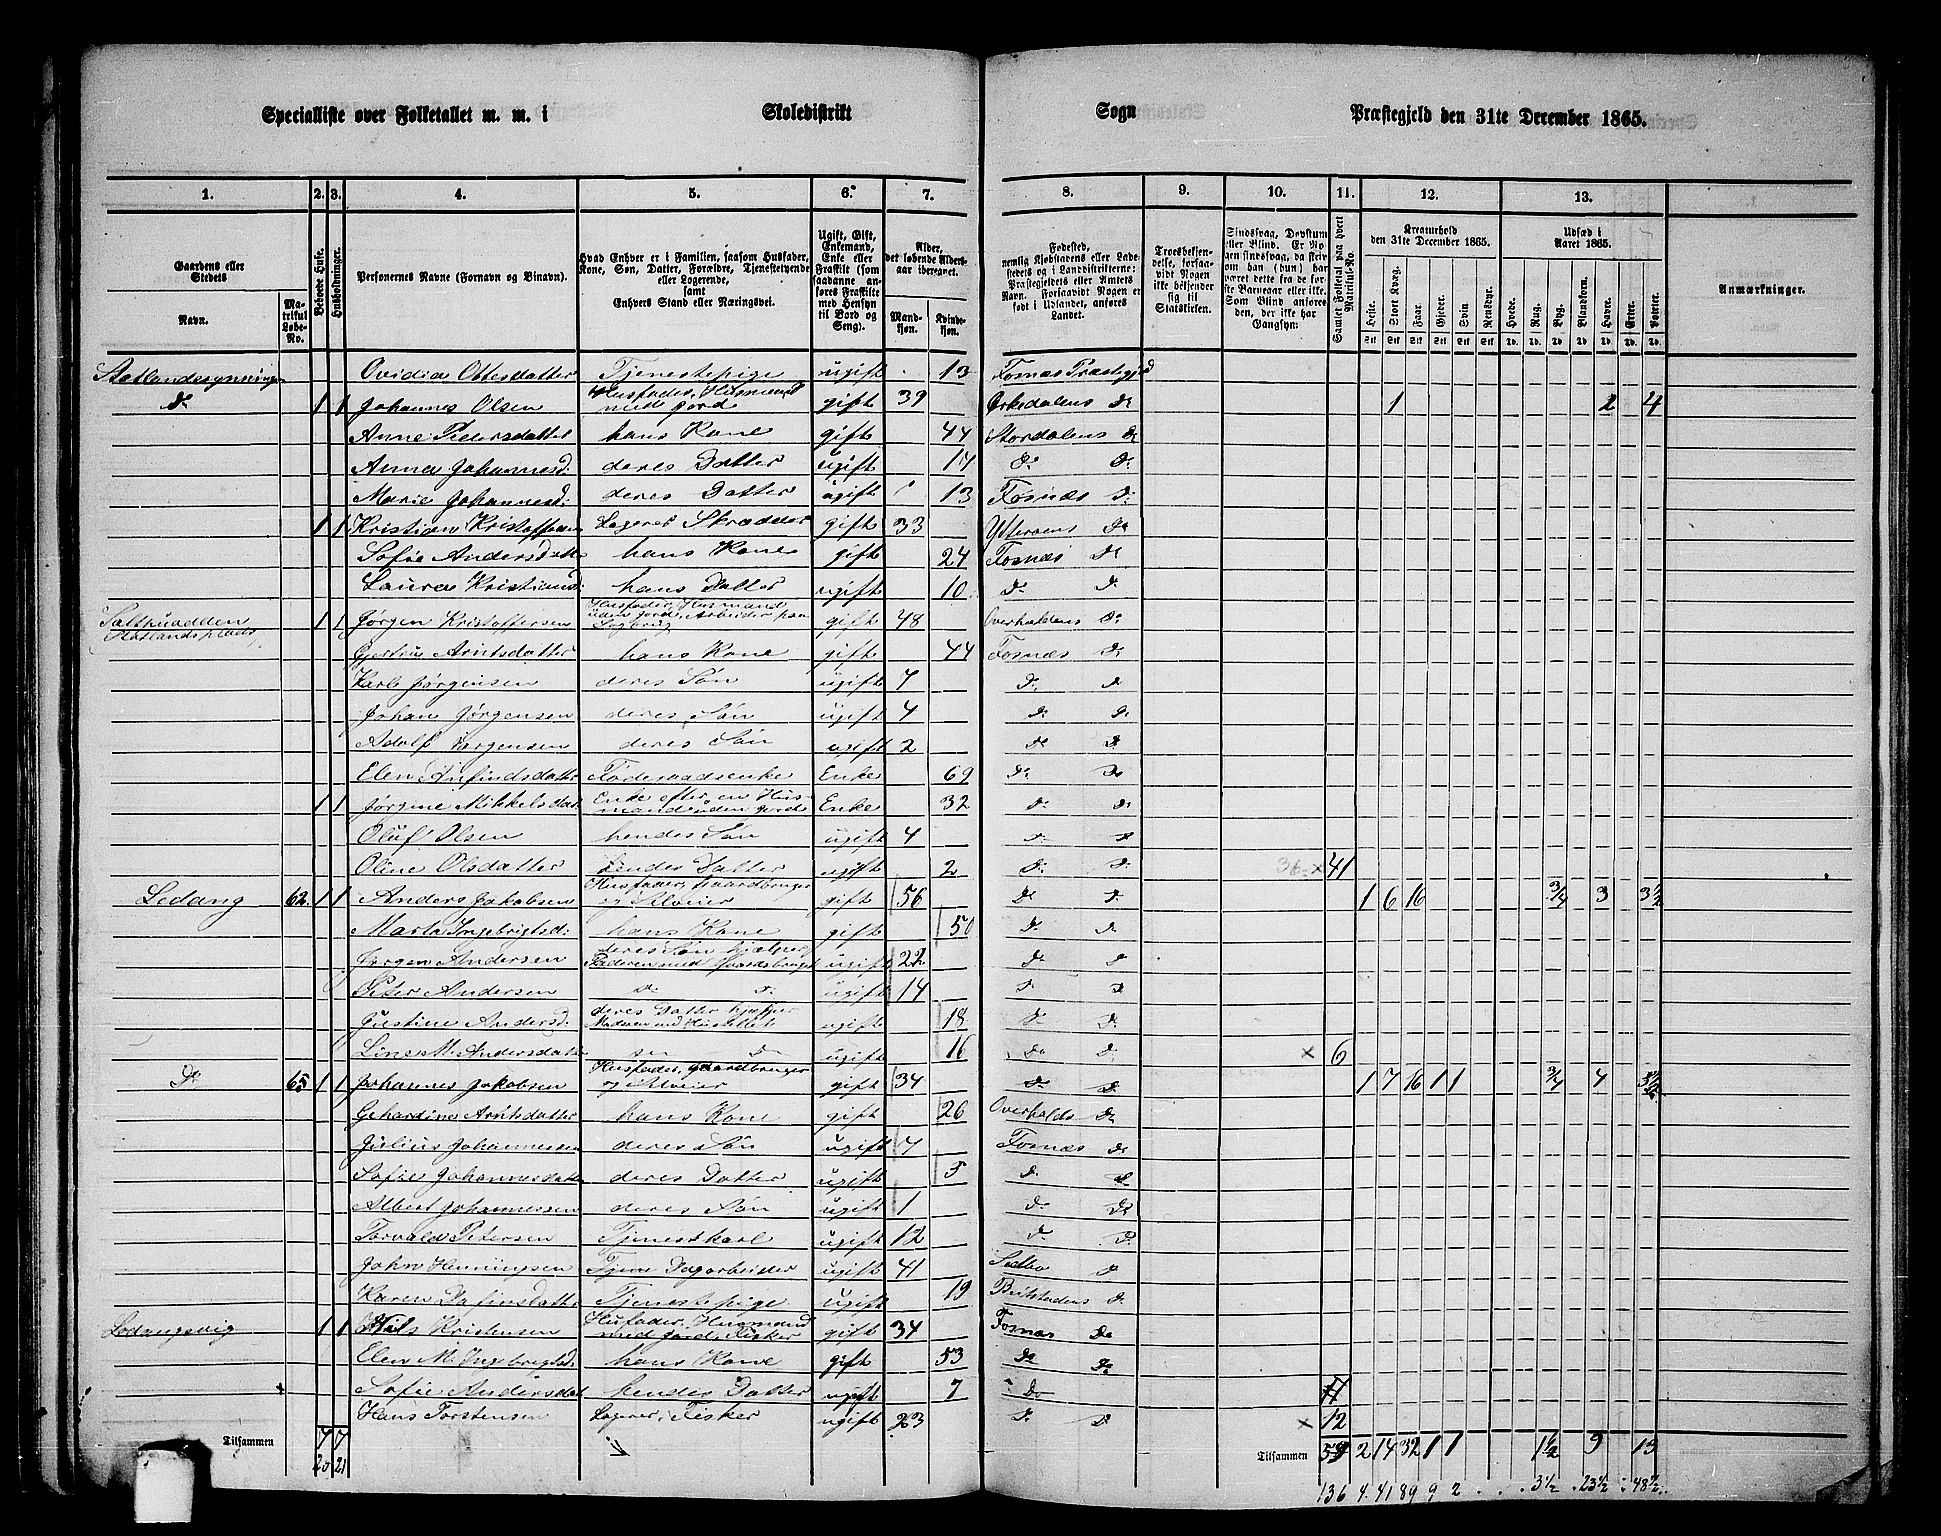 Specialliste over Folketallet m. m. i Skoledistrikt Sogn Præstegjeld den 31te December 1865.
1. 2. 3. 4. 5. 6. 7. 8. 9. 10. 11. 12. 13.
Gaardens eller Stedets Navn.
Matrikul Løbe-No.
Beboede Huse.
Husholdninger.
Personernes Navne (Fornavn og Binavn).
Hvad Enhver er i Familien, saasom Husfader, Kone, Søn, Datter, Forældre, Tjenestetyende eller Logerende, samt Enhvers Stand eller Næringsvei.
Ugift, Gift, Enkemand, Enke eller Fraskilt (som saadanne anføres Fraskilte med Hensyn til Bord og Seng).
Alder, det løbende Alders-aar iberegnet.
Mandkjøn. Kvindekjøn.
Fødested, nemlig Kjøbstadens eller Ladestedets og i Landdistrikterne: Præstegjeldets eller Amtets Navn. Forsaavidt Nogen er født i Udlandet, anføres Landet.
Troesbekjendelse, forsaavidt Nogen ikke bekjender sig til Statskirken.
Sindssvag, Døvstum eller Blind. Er Nogen sindssvag, da skrives om han (hun) har været dette fra de første Barneaar eller ikke. Som Blind anføres den, der ikke har Gangsyn:
Samlet Folketal paa hvert Matrikul-No.
Kreaturhold den 31te December 1865.
Heste. Stort Kvæg. Faar. Gjeder. Svin. Rensdyr.
Udsæd i Aaret 1865.
Hvede. Rug. Byg. Blandkorn. Havre. Erter. Poteter.
Anmærkninger.
Ovidia Ottesdatter Tjenestepige ugift 13 Fosnæs Præstegjed
Do 1 1 Johannes Olsen Husfader, Husmand med jord gift 39 Orkedalens Do 1 2 4
Anne Pedersdatter hans Kone gift 44 Stordalens Do
Anna Johannesd: deres Datter ugift 17 Do Do
Marie Johannesd: deres Datter ugift 13 Fosnæs Do
1 1 Kristian Kristoffersen Logerer Skrædder gift 33 Ytterøens Do
Sofie Andersdatte hans Kone gift 24 Fosnæs Do
Laura Kristiansd: hans Datter ugift 10 Do Do
1 1 Jørgen Kristoffersen Husfader, Husmand uden jord, Arbeider paa Sagbrug gift 48 Overhaldens Do
Arntsdatter hans Kone gift 44 Fosnæs Do
Karl Jørgensen deres Søn ugift 7 Do Do
Johan Jørgensen deres Søn ugift 4 Do Do
Adolf Jørgensen deres Søn ugift 2 Do Do
Elen Anfindsdatter Føderaadsenke Enke 69 Do Do
1 1 Jørgine Mikkelsdat: Enke efter en Husmand uden jord Enke 32 Do Do
Oluf Olsen hendes Søn ugift 4 Do Do
Oline Olsdatter hendes Datter ugift 2 Do Do 36 x 41
Ledang 62 1 1 Anders Jakobsen Husfader, gaardbruger og Selveier gift 56 Do Do 1 6 16 3/4 3 3 1/2
Marta Ingebrigtsd: hans Kone gift 50 Do Do
Jørgen Andersen deres Søn hjælper Faderen med Gaardsbruget ugift 22 Do Do
Peter Andersen Do Do ugift 14 Do Do
Justine Andersd: deres Datter hjælper Moderen med Husstellet ugift 18 Do Do
Line M. Andersdatte Do Do ugift 16 Do Do x 6
Do 65 1 1 Johannes Jakobsen Husfader, gaardbruger og Selveier gift 34 Do Do 1 7 16 1 1 3/4 4
Gehardine Arntsdatter hans Kone gift 26 Overhalds Do
Julius Johannessen deres Søn ugift 7 Fosnæs Do
Sofie Johannesdatte deres Datter ugift 5 Do Do
Albert Johannessen deres Søn ugift 1 Do Do
Torvald Petersen Tjenestkarl ugift 12 Do Do
John Henningsen Dagarbeider ugift 41 Do
Karen Tjenestepige ugift 19 Beitstadens Do
Ledangsvig 1 1 Nils Kristensen Husfader, Husmand med jord, Fisker gift 34 Fosnæs Do
Elen M. Ingebrigtsd: hans Kone gift 53 Do Do
Sofie Andersdat hendes Datter ugift 7 Do
Hans Torstensen Logerer, Fisker ugift 23 Do Do x 12
Tilsammen 7 7 Tilsammen 59 2 14 32 1 1 1 1/2 9 13
20 21 136 4 41 89 9 2 3 1/2 23 1/2 48 1/2